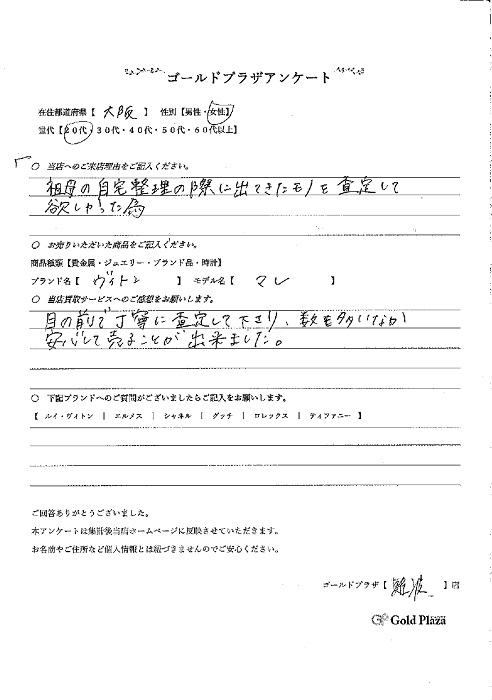 ゴールドプラザアンケート
在住都道府県【 大阪 】 性別【男性・女性】
世代【20代・30代・40代・50代・60代以上】
○ 当店へのご来店理由をご記入ください。
祖母の自宅整理の際に出てきたモノを査定して
欲しかった為
○ お売りいただいた商品をご記入ください。
商品種類【貴金属・ジュエリー・ブランド品・時計】
ブランド名【 ヴィトン 】 モデル名【 マレ 】
○ 当店買取サービスへのご感想をお願いします。
目の前で丁寧に査定して下さり、数も多いなか
安心して売ることが出来ました。
○ 下記ブランドへのご質問がございましたらご記入をお願いします。
【 ルイ・ヴィトン | エルメス | シャネル | グッチ | ロレックス | ティファニー 】
ご回答ありがとうございました。
本アンケートは集計後当店ホームページに反映させていただきます。
お名前やご住所など個人情報とは紐づきませんのでご安心ください。
ゴールドプラザ【 難波 】店
Gold Plaza